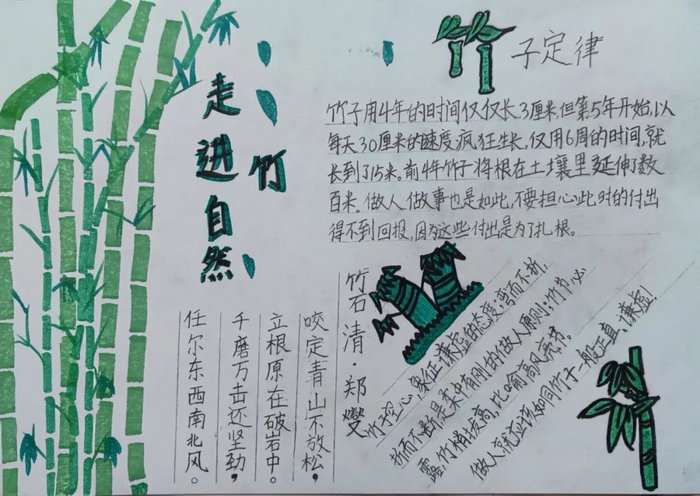 走进自然
竹
竹子定律
竹子用4年的时间仅仅长3厘米,但第5年开始,以
每天30厘米的速度疯狂生长,仅用6周的时间,就
长到了15米。前4年竹子将根在土壤里延伸了数
百米。做人做事也是如此,不要担心此时的付出
得不到回报,因为这些付出是为了扎根。
竹石 清·郑燮
咬定青山不放松,
立根原在破岩中。
千磨万击还坚劲,
任尔东西南北风。
竹子空心,象征谦虚的态度;弯而不折,
折而不断,是柔中有刚的做人原则;竹节必
露,竹梢拔高,比喻高风亮节。
做人就应该如同竹子一般正直、谦虚。